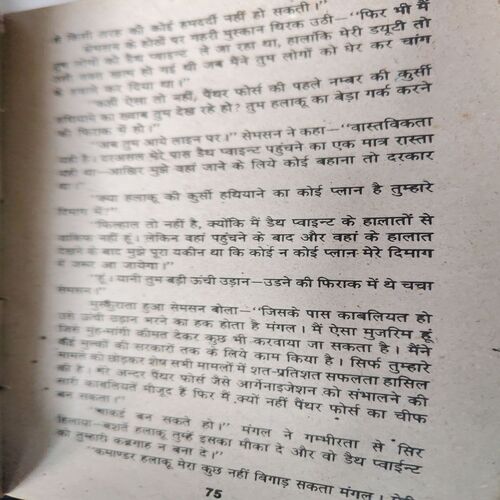 से किसी तरह की कोई हमदर्दी नहीं हो सकती।"
सेमसन के होठों पर गहरी मुस्कान थिरक उठी—"फिर भी मैं
तुम लोगों को डैथ प्वाइन्ट ले जा रहा था, हालांकि मेरी डयूटी तो
उसी वक्त खत्म हो गई थी जब मैंने तुम लोगों को घेर कर चांग
के हवाले कर दिया था।"
"कहीं ऐसा तो नहीं, पैंथर फोर्स की पहले नम्बर की कुर्सी
हथियाने का ख्वाब तुम देख रहे हो? तुम हलाकू का बेड़ा गर्क करने
की फिराक में हो।"
"अब तुम आये लाइन पर।" सेमसन ने कहा—"वास्तविकता
यही है। दरअसल मेरे पास डैथ प्वाइन्ट पहुंचने का एक मात्र रास्ता
यही था—आखिर मुझे वहां जाने के लिये कोई बहाना तो दरकार
था।"
"क्या हलाकू की कुर्सी हथियाने का कोई प्लान है तुम्हारे
दिमाग में?"
"फिलहाल तो नहीं है, क्योंकि मैं डैथ प्वाइन्ट के हालातों से
वाकिफ नहीं हूं। लेकिन वहां पहुंचने के बाद और वहां के हालात
देखने के बाद मुझे पूरा यकीन था कि कोई न कोई प्लान मेरे दिमाग
में जन्म आ जायेगा।"
"हूं। यानी तुम बड़ी ऊंची उड़ान—उडने की फिराक में थे चचा
सेमसन।"
मुस्कुराता हुआ सेमसन बोला—"जिसके पास काबलियत हो
उसे ऊंची उड़ान भरने का हक होता है मंगल। मैं ऐसा मुजरिम हूं
जिसे मुंह-मांगी कीमत देकर कुछ भी करवाया जा सकता है। मैंने
कई मुल्कों की सरकारों तक के लिये काम किया है। सिर्फ तुम्हारे
मामले को छोड़कर शेष सभी मामलों में शत-प्रतिशत सफलता हासिल
की है। मेरे अन्दर पैंथर फोर्स जैसे आर्गेनाइजेशन को संभालने की
सारी काबलियतें मौजूद हैं फिर मैं क्यों नहीं पैंथर फोर्स का चीफ
बन सकता।"
"वाकई बन सकते हो।" मंगल ने गम्भीरता से सिर
हिलाया—बशर्ते हलाकू तुम्हें इसका मौका दे और वो डैथ प्वाईन्ट
को तुम्हारी कब्रगाह न बना दे।"
"कमाण्डर हलाकू मेरा कुछ नहीं बिगाड़ सकता मंगल।
75